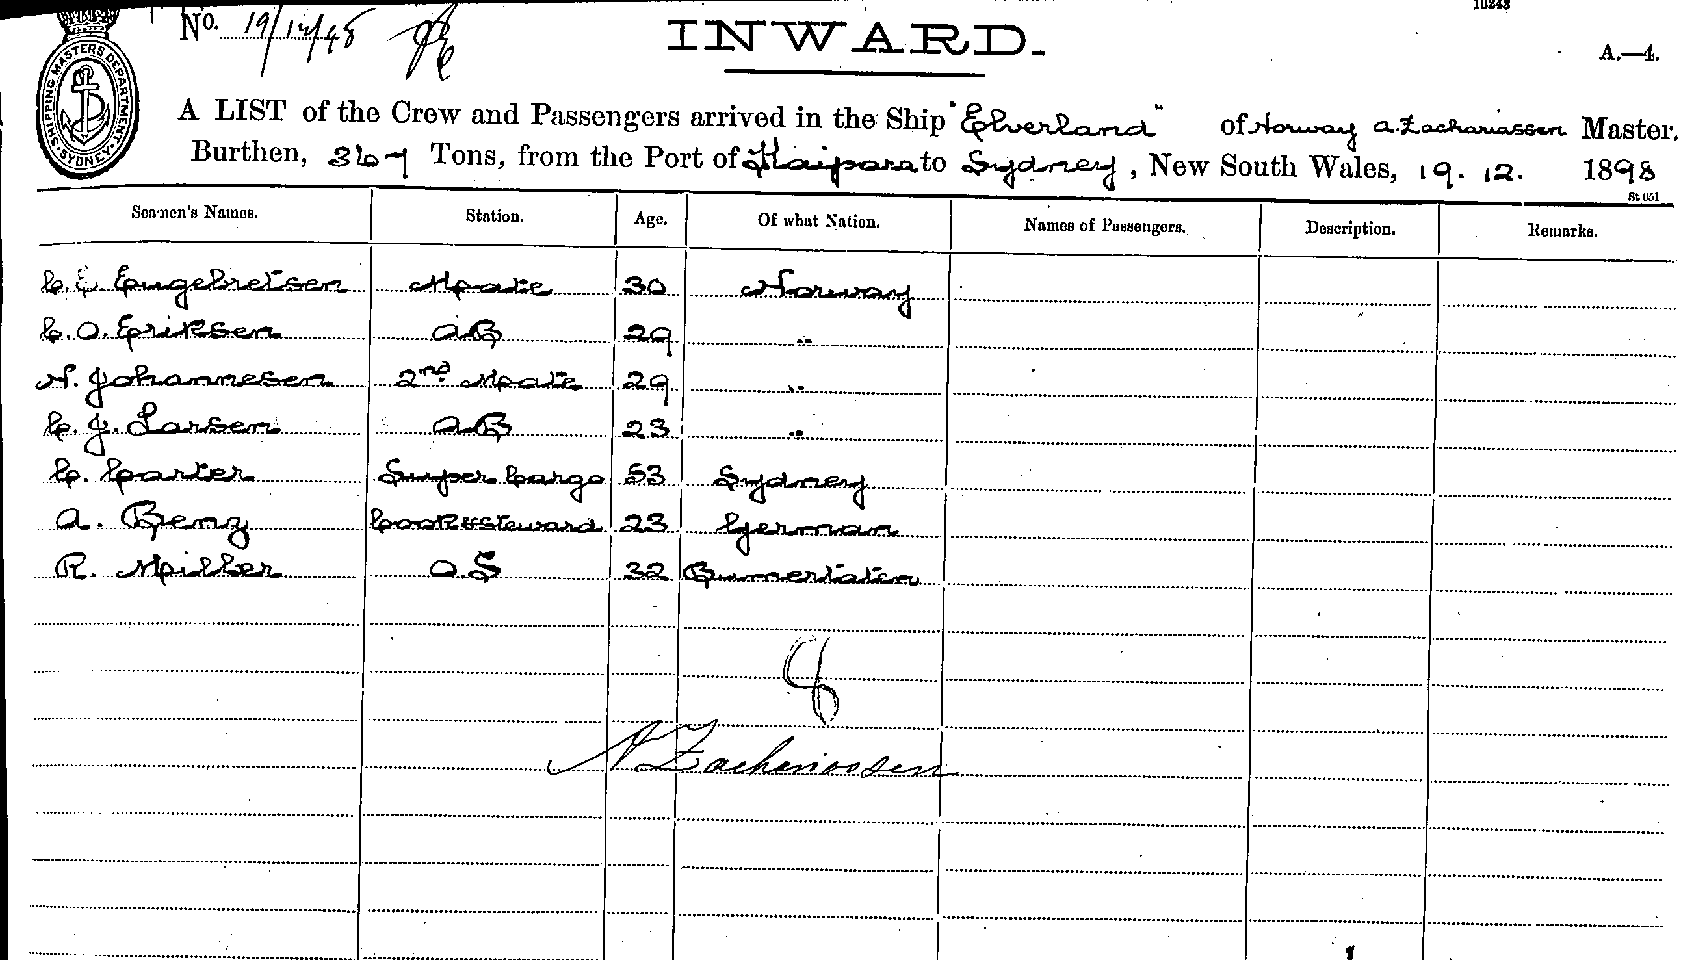 10243
No. 19/12/98
INWARD.
A.—4.
SHIPPING MASTERS DEPARTMENT. SYDNEY
A LIST of the Crew and Passengers arrived in the Ship "Elverland" of Norway A. Zachariassen Master,
Burthen, 367 Tons, from the Port of Kaipara to Sydney, New South Wales, 19. 12. 1898
St 051
Seamen's Names. Station. Age. Of what Nation. Names of Passengers. Description. Remarks.
C. E. Engebretsen Mate 30 Norway
C. O. Eriksen AB 29 "
N. Johannesen 2nd Mate 29 "
C. J. Larsen AB 23 "
C. Carter Super Cargo 53 Sydney
A. Benz Cook & Steward 23 German
R. Miller OS 32
8
A Zachariassen